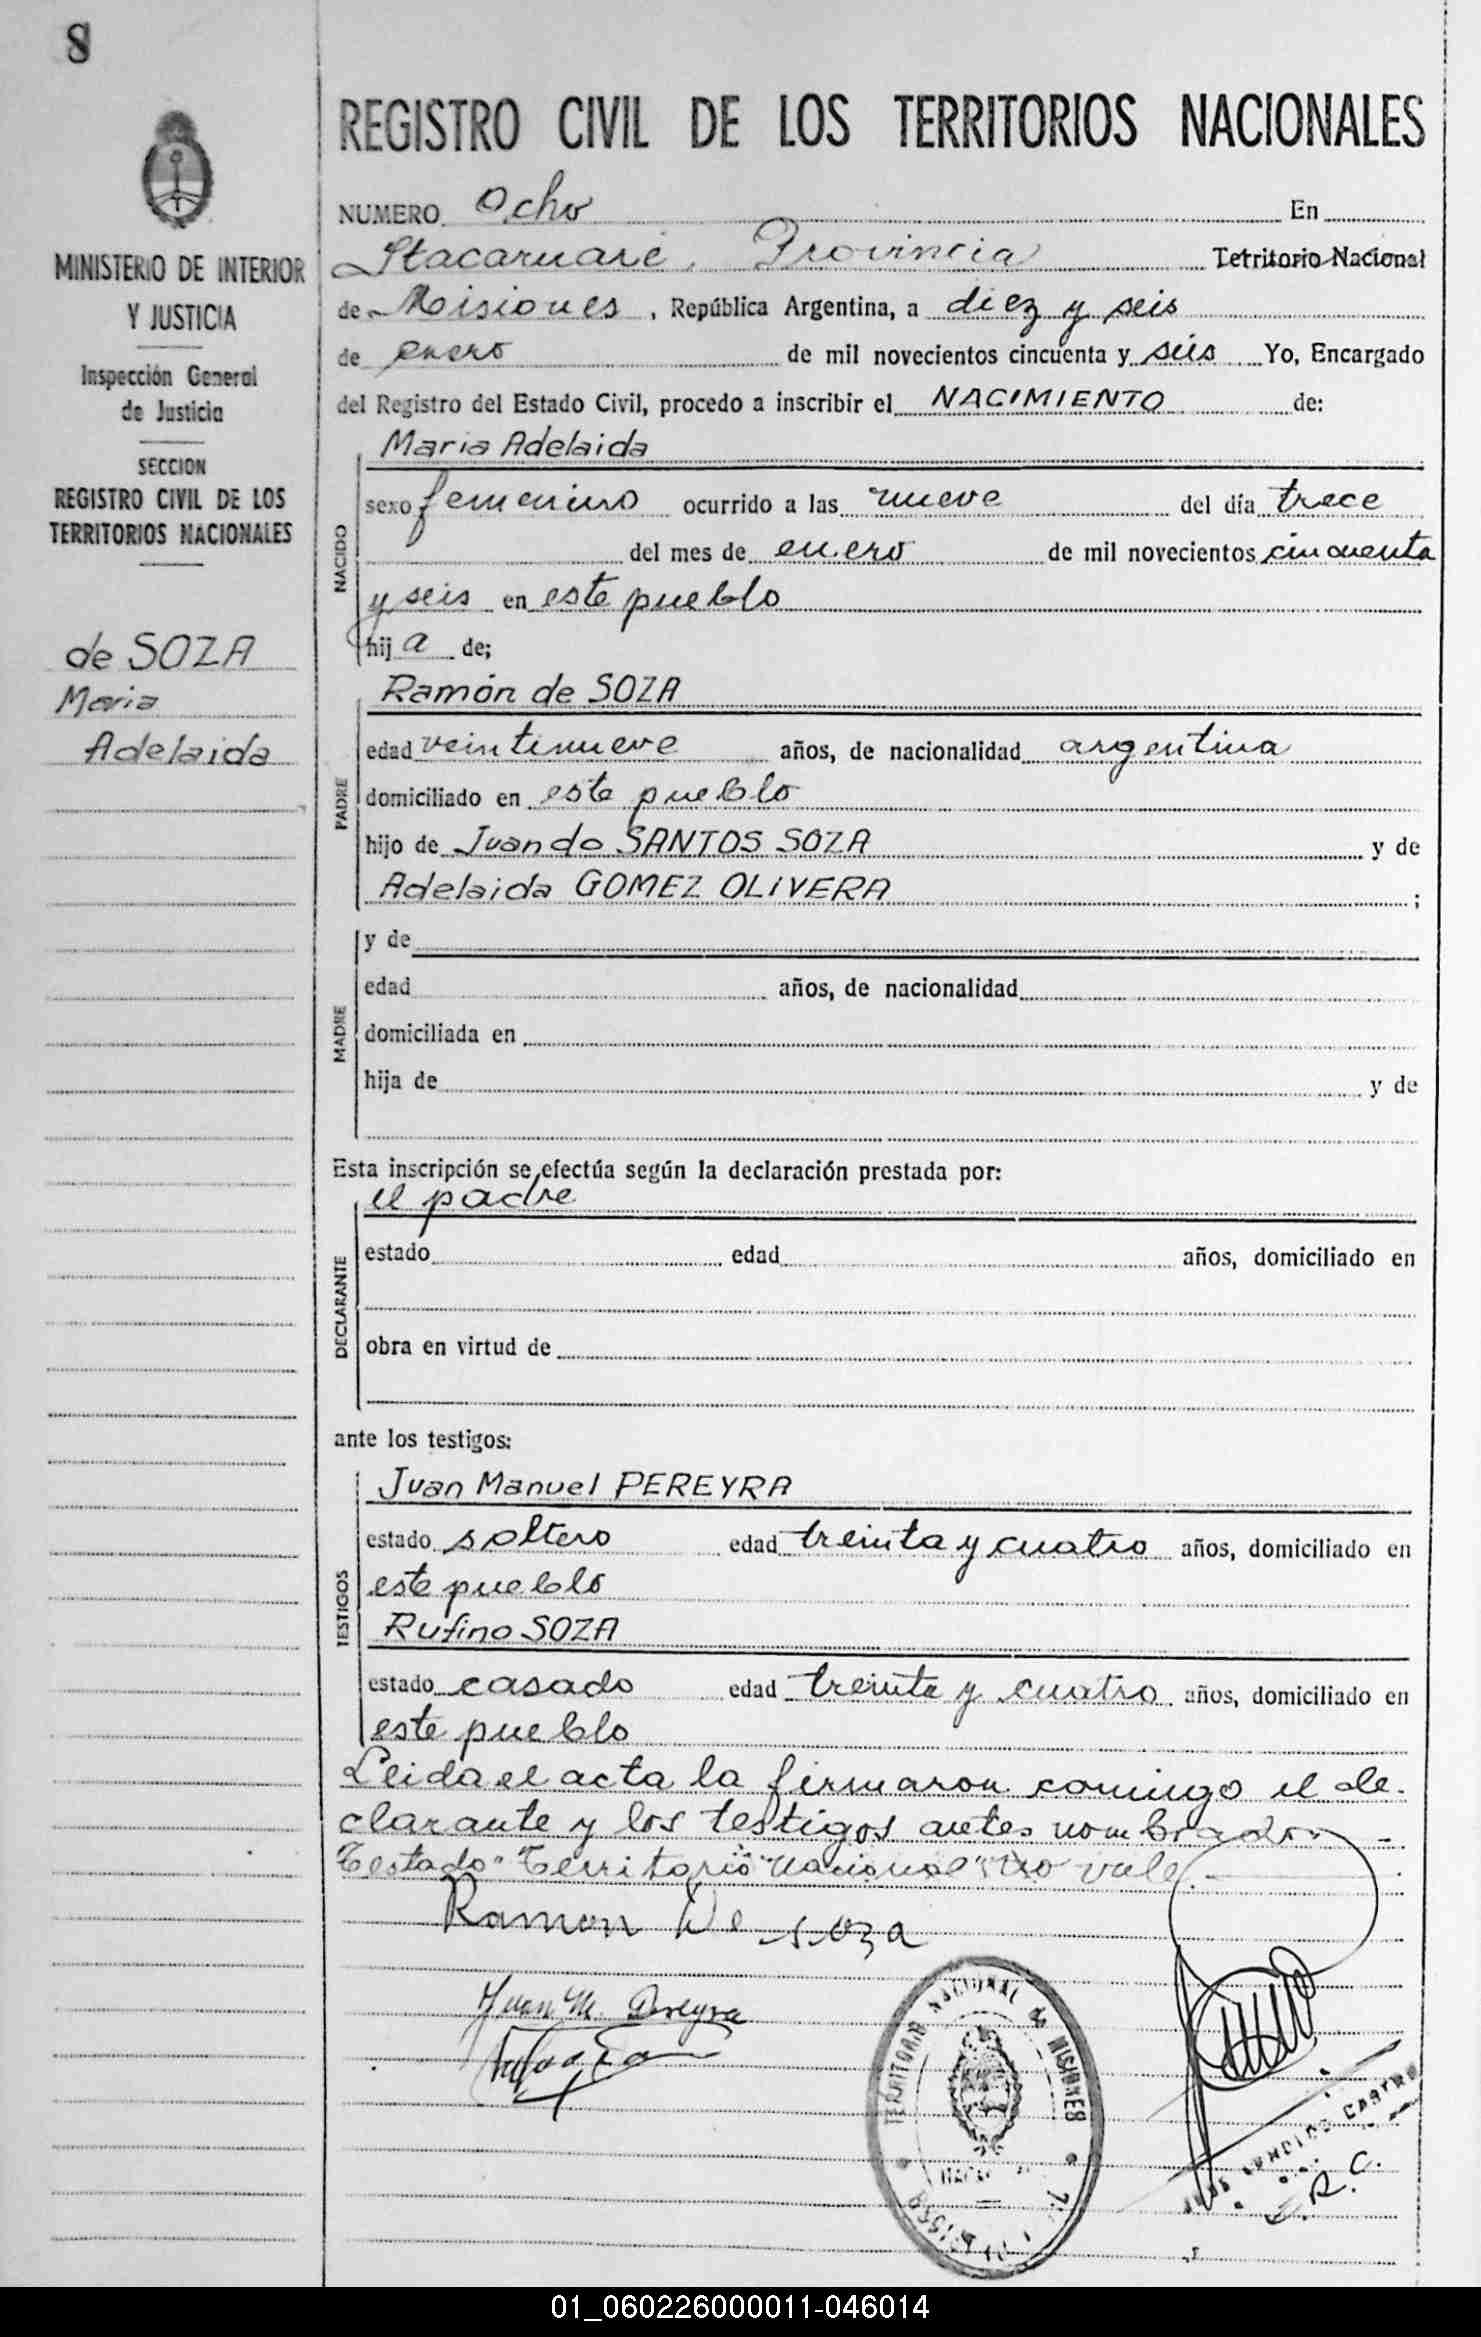 8
MINISTERIO DE INTERIOR
Y JUSTICIA
Inspección General
de Justicia
SECCION
REGISTRO CIVIL DE LOS
TERRITORIOS NACIONALES
de SOZA
Maria
Adelaida
REGISTRO CIVIL DE LOS TERRITORIOS NACIONALES
NUMERO Ocho En
Itacaruaré, Provincia Territorio Nacional
de Misiones, República Argentina, a diez y seis
de enero de mil novecientos cincuenta y seis Yo, Encargado
del Registro del Estado Civil, procedo a inscribir el NACIMIENTO de:
NACIDO
Maria Adelaida
sexo femenino ocurrido a las nueve del día trece
del mes de enero de mil novecientos cincuenta
y seis en este pueblo
hij a de;
PADRE
Ramón de SOZA
edad veintinueve años, de nacionalidad argentina
domiciliado en este pueblo
hijo de Juan do SANTOS SOZA y de
Adelaida GOMEZ OLIVERA ;
MADRE
y de
edad años, de nacionalidad
domiciliada en
hija de y de
Esta inscripción se efectúa según la declaración prestada por:
DECLARANTE
el padre
estado edad años, domiciliado en
obra en virtud de
ante los testigos:
TESTIGOS
Juan Manuel PEREYRA
estado soltero edad treinta y cuatro años, domiciliado en
este pueblo
Rufino SOZA
estado casado edad treinta y cuatro años, domiciliado en
este pueblo
Leida el acta la firmaron comingo el de-
clarante y los testigos antes nombrados -
Testado "Territorio" "Nacional" No vale.
Ramon De soza
Juan M. Pereyra
TERRITORIO NACIONAL de MISIONES
CASTRO
E. R. C.
01_060226000011-046014